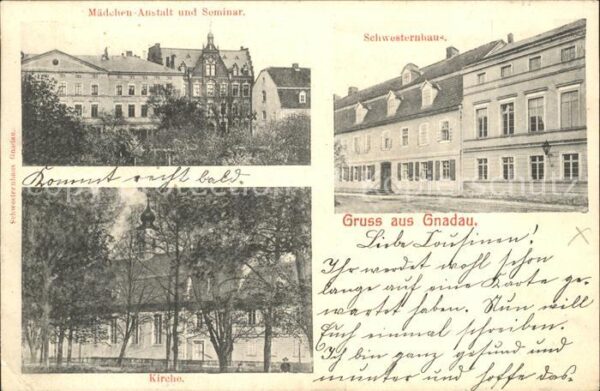 Mädchen-Anstalt und Seminar.
Schwesternhaus.
Schwesternhaus Gnadau.
Kommt recht bald.
Gruss aus Gnadau.
Liebe Cousinen!
Ihr werdet wohl schon
lange auf eine Karte ge-
wartet haben. Nun will
Euch einmal schreiben.
Ich bin ganz gesund und
munter und hoffe das.
Kirche.